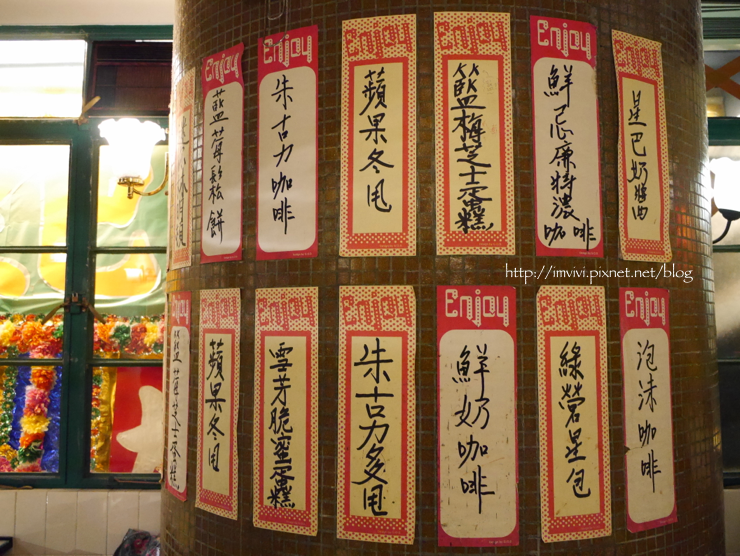 Enjoy
藍莓鬆餅
Enjoy
朱古力咖啡
Enjoy
蘋果冬甩
Enjoy
藍梅芝士蛋糕
Enjoy
鮮忌廉特濃咖啡
Enjoy
星巴奶醬
http://imvivi.pixnet.net/blog
藍莓芝士蛋糕
Enjoy
蘋果冬甩
Enjoy
雲芽脆蜜蛋糕
Enjoy
朱古力冬甩
Enjoy
鮮奶咖啡
Enjoy
綠營星包
Enjoy
泡沫咖啡